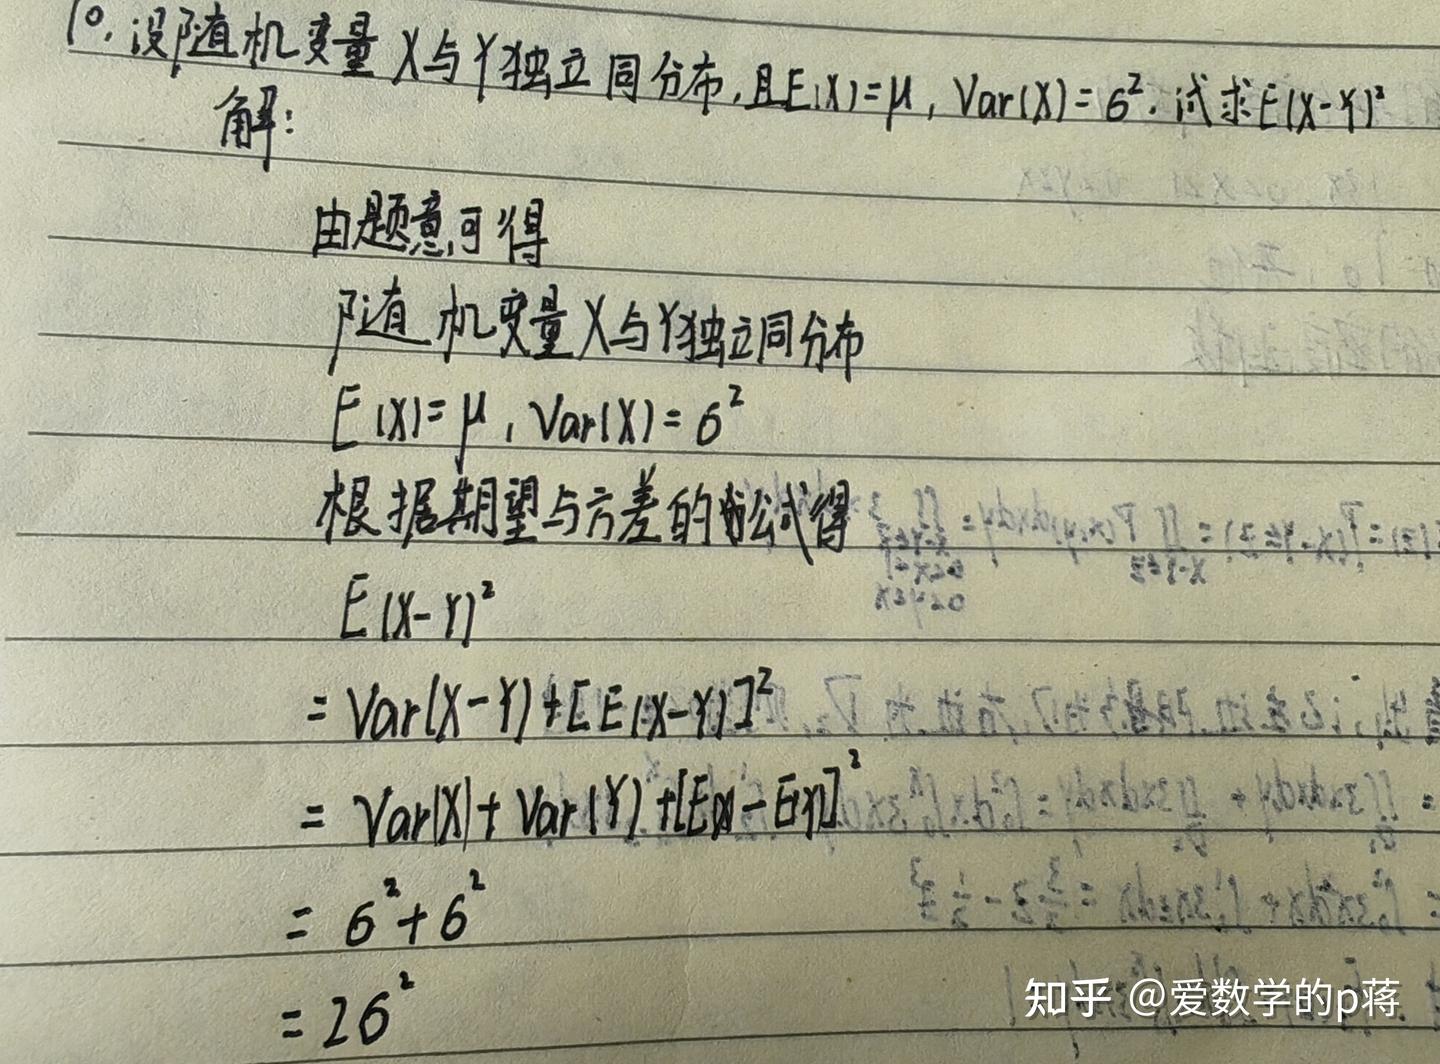 10. 设随机变量 X与Y独立同分布,且E(X)=μ, Var(X)=6². 试求E(X-Y)²
解:
由题意可得
随机变量X与Y独立同分布
E(X)=μ, Var(X)=6²
根据期望与方差的公式得
E(X-Y)²
= Var(X-Y)+[E(X-Y)]²
= Var(X)+Var(Y)+[E(X)-E(Y)]²
= 6²+6²
= 26²
知乎 @爱数学的p蒋